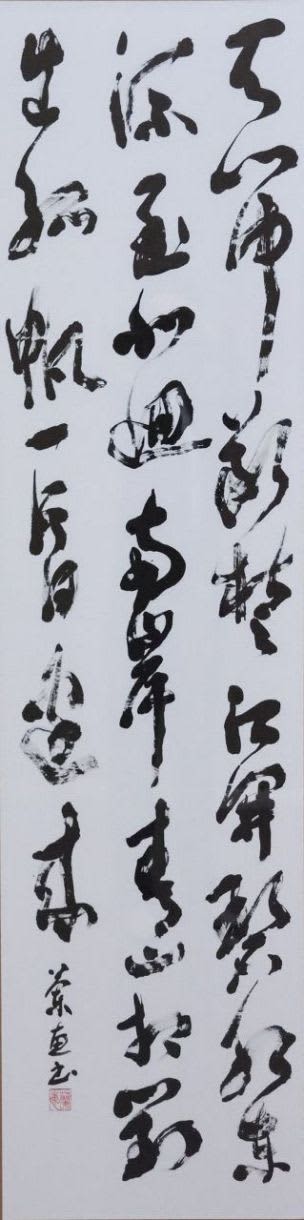 天門中斷楚江開碧水東
流至北廻兩岸青山相對
出孤帆一片日邊来